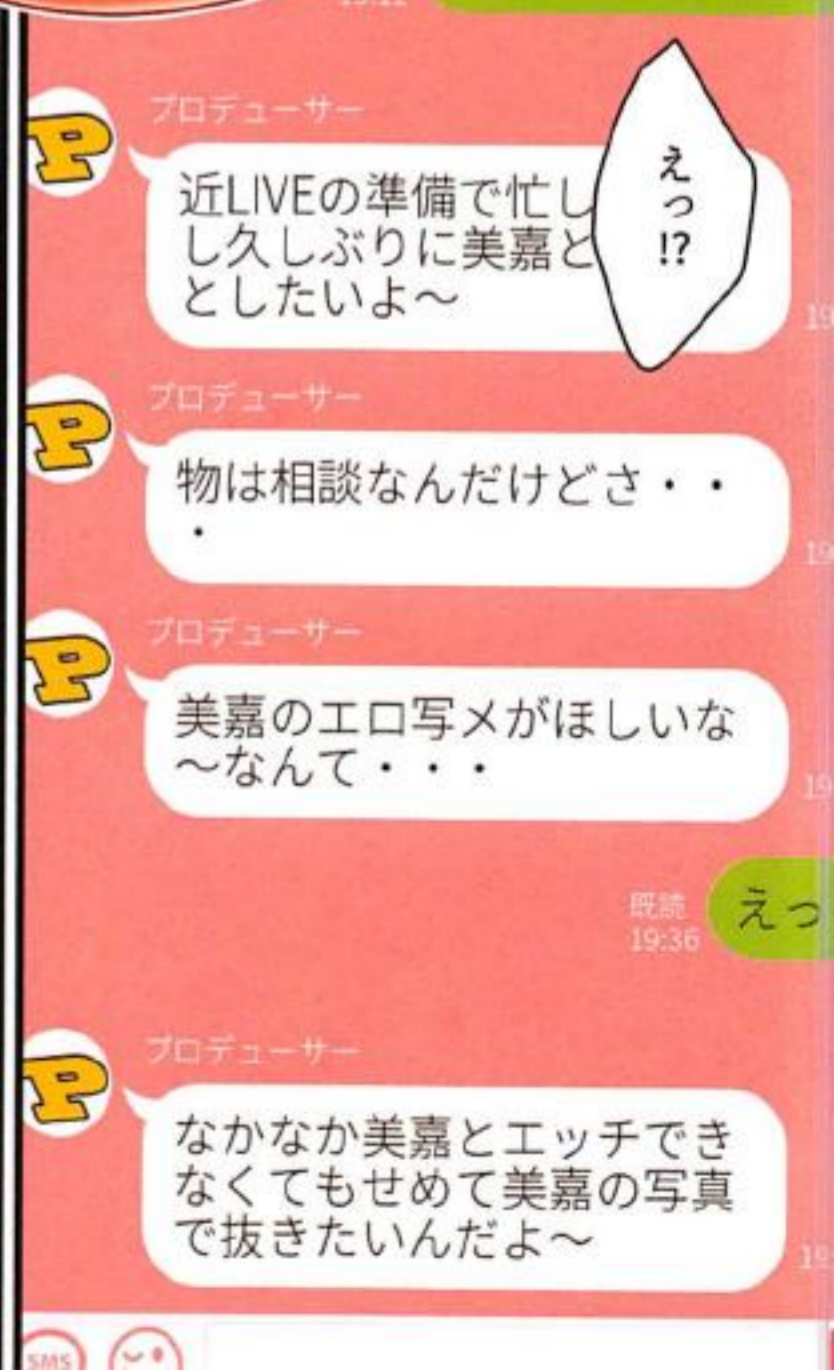 プロデューサー
近LIVEの準備で忙し
し久しぶりに美嘉と
としたいよ～
えっ!?
プロデューサー
物は相談なんだけどさ・・
・
プロデューサー
美嘉のエロ写メがほしいな
～なんて・・・
えっ
既読
19:36
プロデューサー
なかなか美嘉とエッチでき
なくてもせめて美嘉の写真
で抜きたいんだよ～
SMS